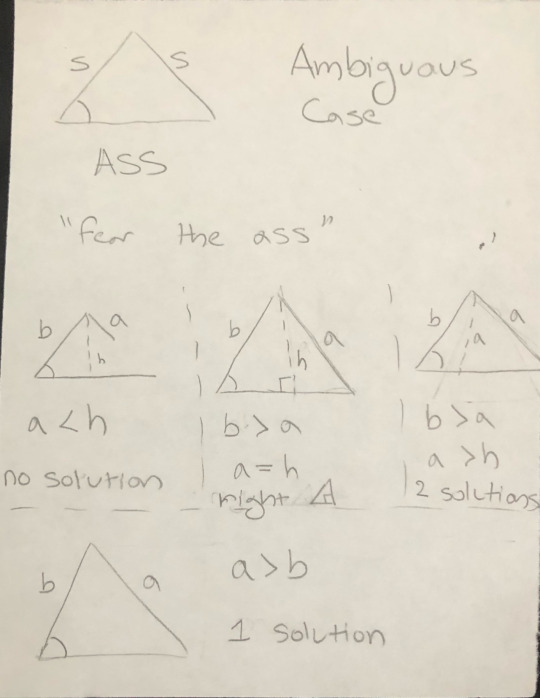 S S
Ambiguous
Case
ASS
"fear the ass"
b a
h
a < h
no solution
b a
h
b > a
a = h
right
b a
a
b > a
a > h
2 solutions
b a
a > b
1 solution